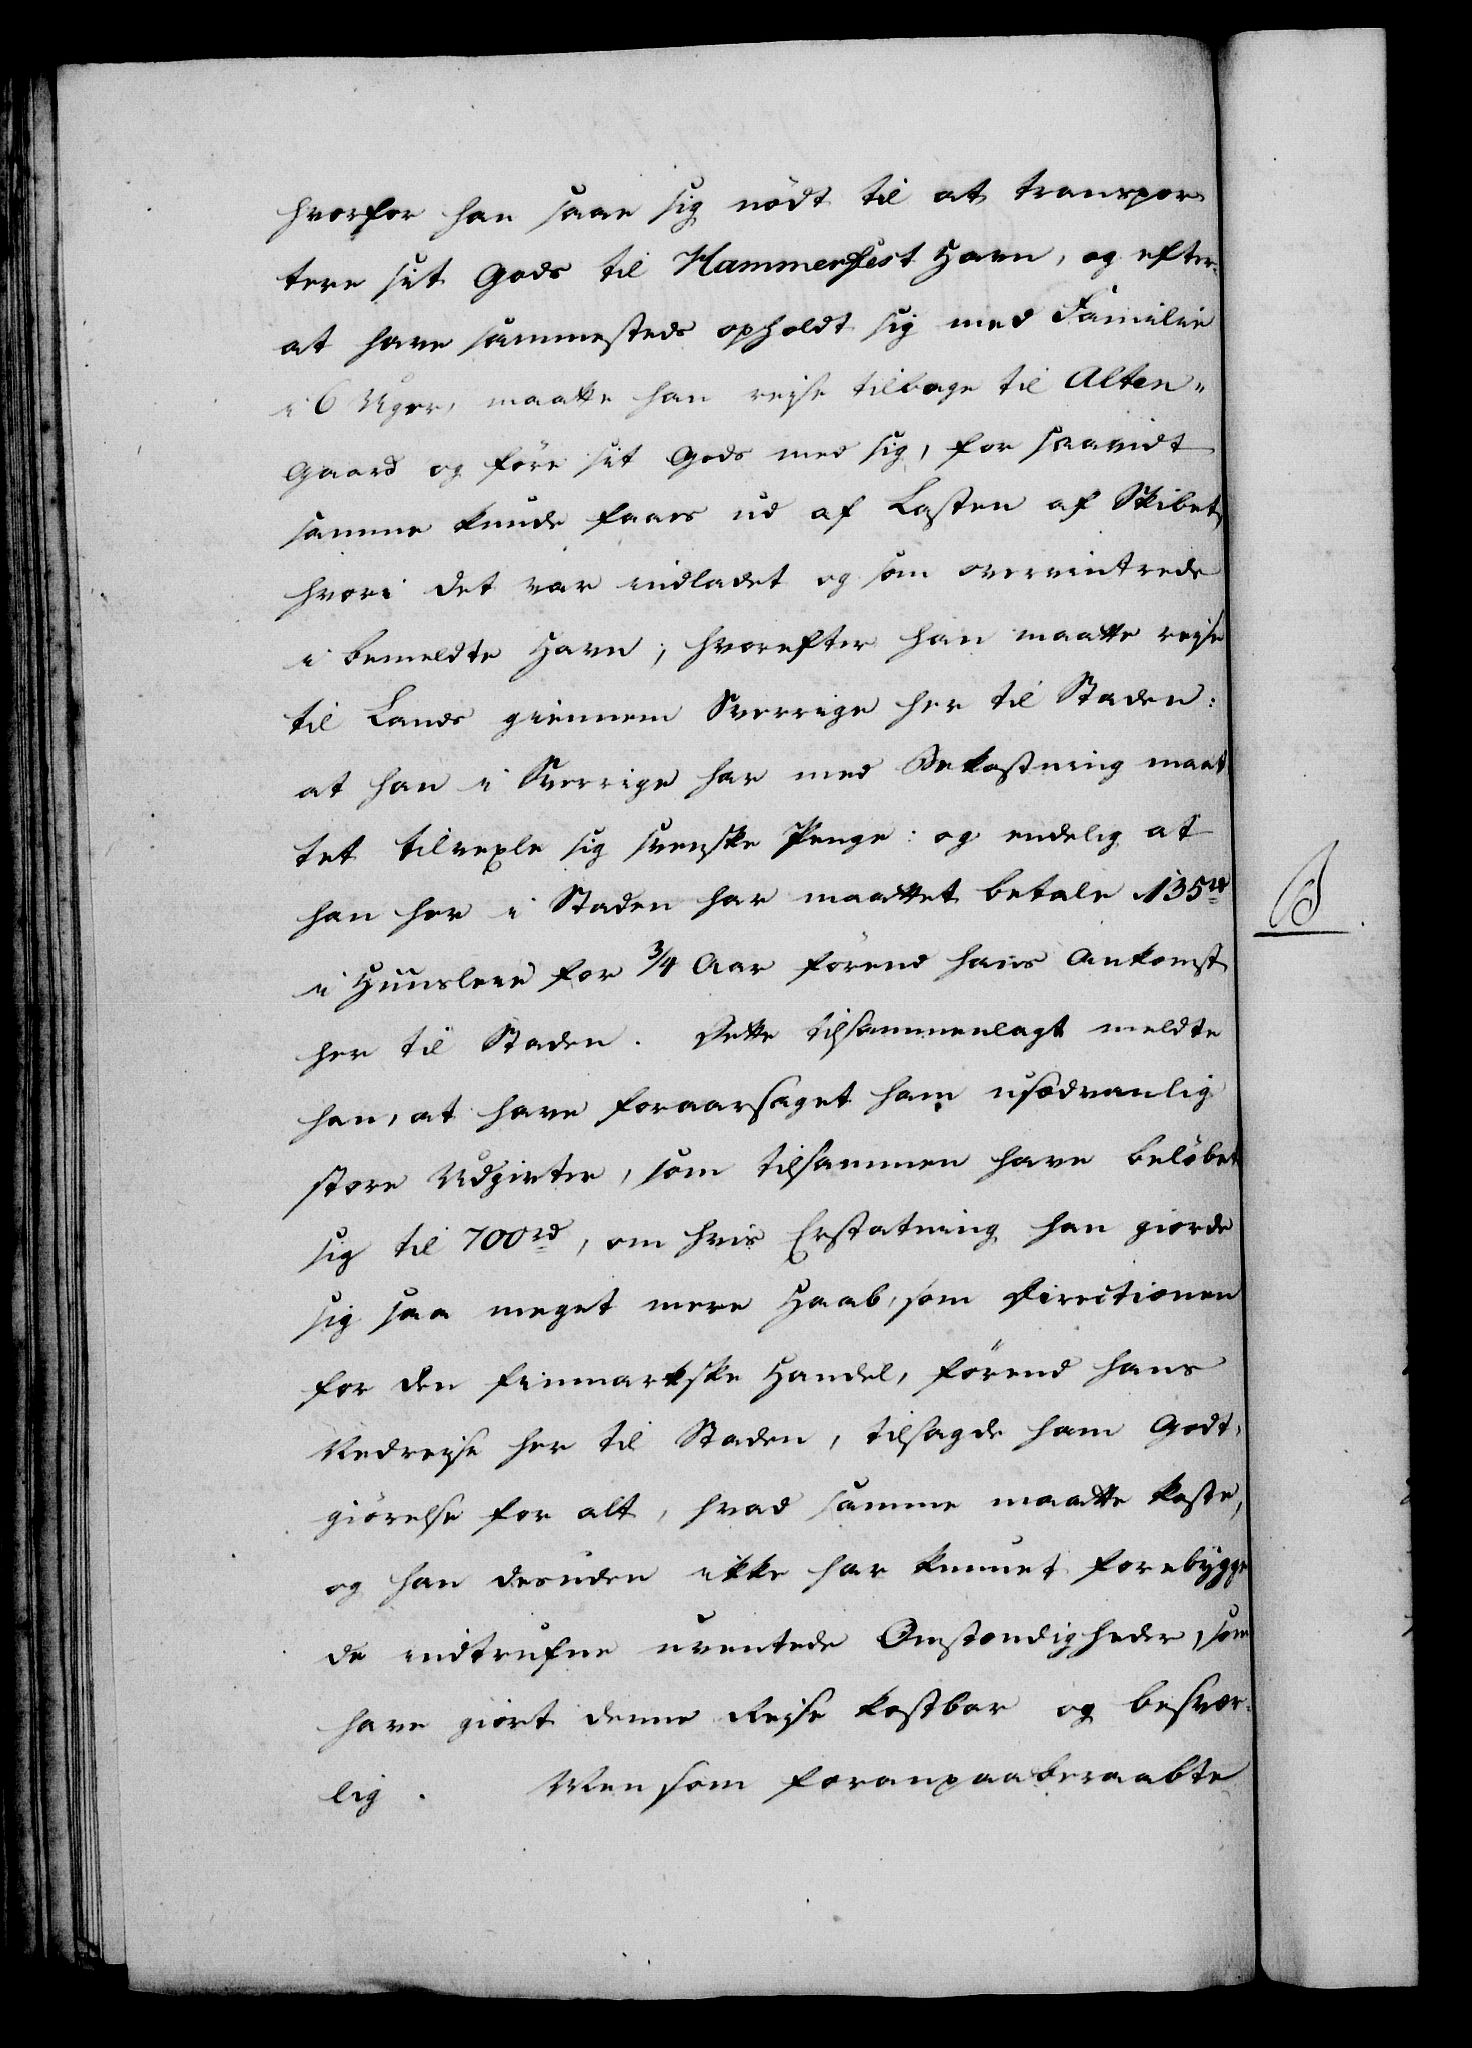 hvorfor han saae sig nödt til at transpor
tere sit Gods til Hammerfest Havn, og efter
at have sammesteds opholdt sig med Familie
i 6 Uger, maatte han reise tilbage til Alten„
Gaard og före sit Gods med sig, for saavidt
samme kunde faaes ud af Lasten af Skibet,
hvori det var indladet og som overvintrede
i bemeldte Havn; hvorefter han maatte reise
til Lands giennem Sverrige her til Staden:
at han i Sverrige har med Bekostning maat
tet tilvexle sig svenske Penge: og endelig at
han her i Staden har maattet betale 135 rd
i Huusleie for 3/4 Aar förend hans Ankomst
her til Staden. Dette tilsammenlagt meldte
han, at have foraarsaget ham usædvanlig
store Udgivter, som tilsammen have belöbet
sig til 700 rd, om hvis Erstatning han giorde
sig saa meget mere Haab, som Directionen
for den finmarkske Handel, förend hans
Nedreise her til Staden, tilsagde ham Godt-
giörelse for alt, hvad samme maatte koste,
og han desuden ikke har kunnet forebygge
de indtrufne uventede Omstændigheder, som
have giort denne Reise kostbar og besvær-
lig. Men som foranpaaberaabte